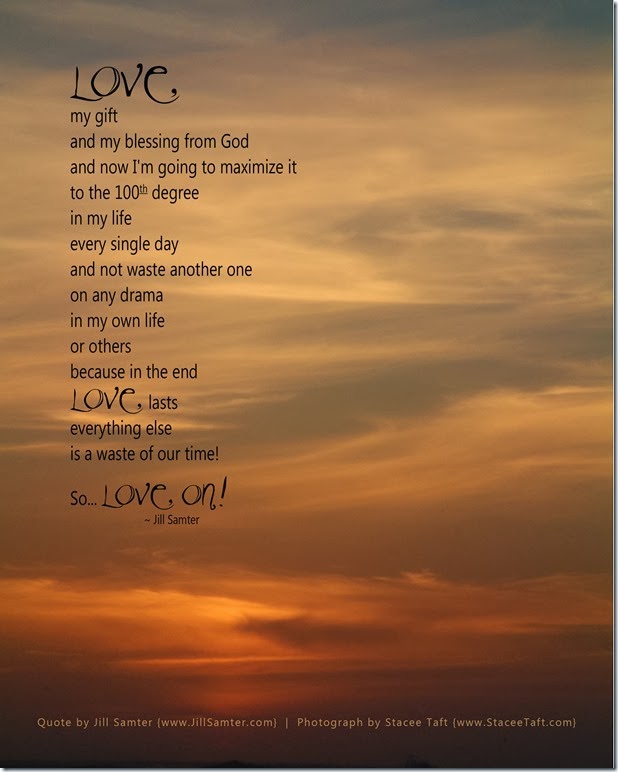 Love,
my gift
and my blessing from God
and now I'm going to maximize it
to the 100th degree
in my life
every single day
and not waste another one
on any drama
in my own life
or others
because in the end
Love, lasts
everything else
is a waste of our time!
So... Love, on!
~ Jill Samter
Quote by Jill Samter (www.JillSamter.com) | Photograph by Stacee Taft (www.StaceeTaft.com)